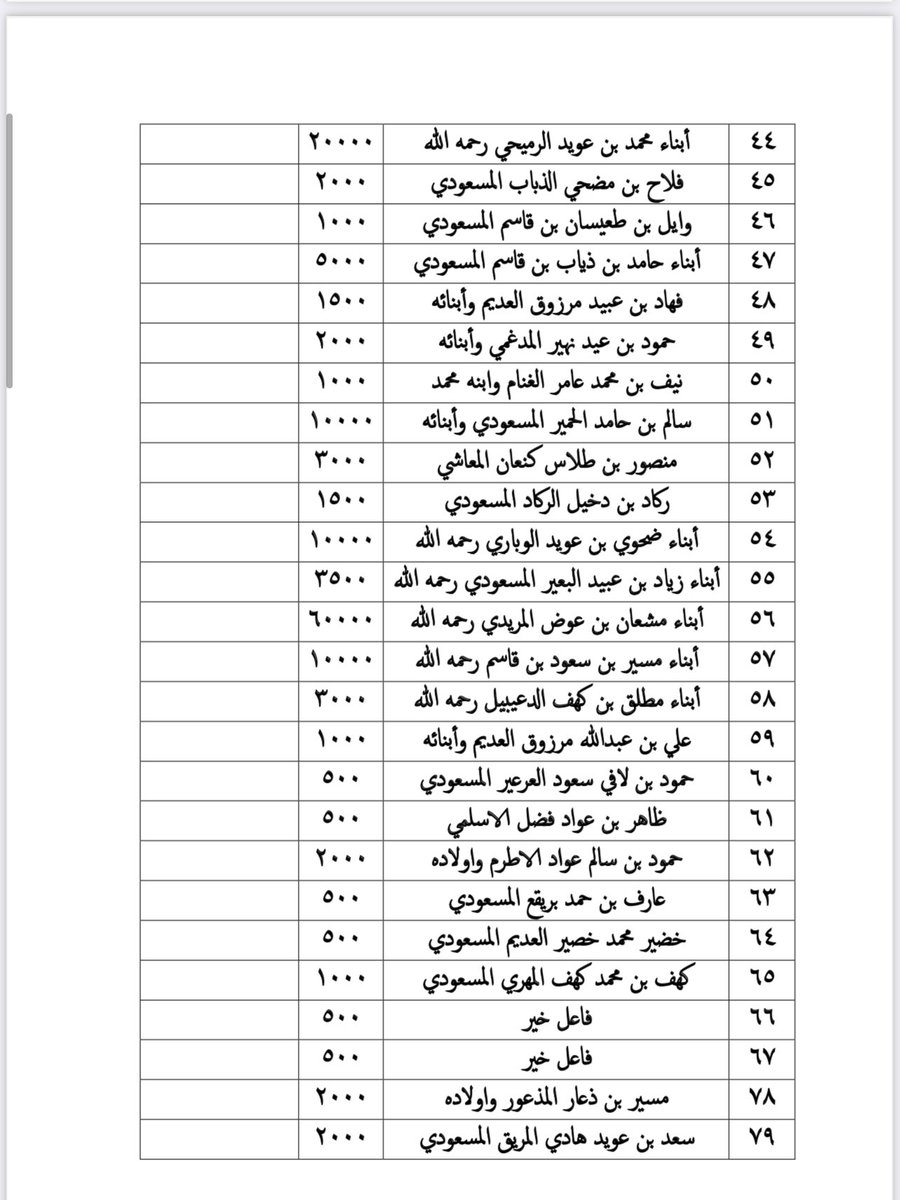 ٤٤ أبناء محمد بن عويد الرميحي رحمه الله ٢٠٠٠٠
٤٥ فلاح بن مضحي الذباب المسعودي ٢٠٠٠
٤٦ وايل بن طعيسان بن قاسم المسعودي ١٠٠٠
٤٧ أبناء حامد بن ذياب بن قاسم المسعودي ٥٠٠٠
٤٨ فهاد بن عبيد مرزوق العديم وأبنائه ١٥٠٠
٤٩ حمود بن عيد نهير المدغمي وأبنائه ٢٠٠٠
٥٠ نيف بن محمد عامر الغنام وابنه محمد ١٠٠٠
٥١ سالم بن حامد الحمير المسعودي وأبنائه ١٠٠٠٠
٥٢ منصور بن طلاس كنعان المعاشي ٣٠٠٠
٥٣ ركاد بن دخيل الركاد المسعودي ١٥٠٠
٥٤ أبناء ضحوي بن عويد الوباري رحمه الله ١٠٠٠٠
٥٥ أبناء زياد بن عبيد البعير المسعودي رحمه الله ٣٥٠٠
٥٦ أبناء مشعان بن عوض المريدي رحمه الله ٦٠٠٠٠
٥٧ أبناء مسير بن سعود بن قاسم رحمه الله ١٠٠٠٠
٥٨ أبناء مطلق بن كهف الدعيبيل رحمه الله ٣٠٠٠
٥٩ علي بن عبدالله مرزوق العديم وأبنائه ١٠٠٠
٦٠ حمود بن لافي سعود العرعير المسعودي ٥٠٠
٦١ ظاهر بن عواد فضل الاسلمي ٥٠٠
٦٢ حمود بن سالم عواد الاطرم واولاده ٢٠٠٠
٦٣ عارف بن حمد بريقع المسعودي ٥٠٠
٦٤ خضير محمد خصير العديم المسعودي ٥٠٠
٦٥ كهف بن محمد كهف المهري المسعودي ١٠٠٠
٦٦ فاعل خير ٥٠٠
٦٧ فاعل خير ٥٠٠
٧٨ مسير بن ذعار المذعور واولاده ٢٠٠٠
٧٩ سعد بن عويد هادي المريق المسعودي ٢٠٠٠